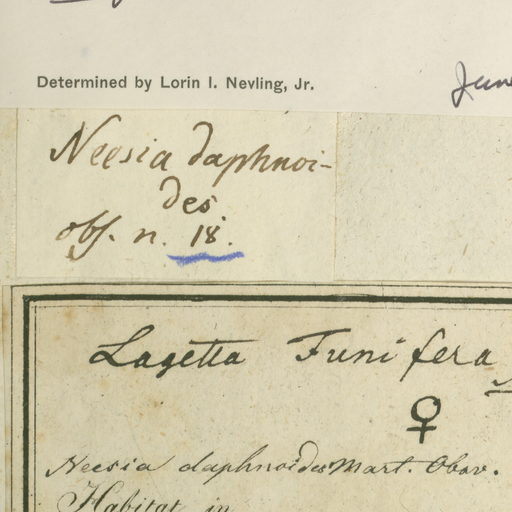 Determined by Lorin I. Nevling, Jr.
June
Neesia daphnoi-
des
obs. n. 18.
Lagetta Funifera
♀
Neesia daphnoides Mart. Obsv.
Habitat in